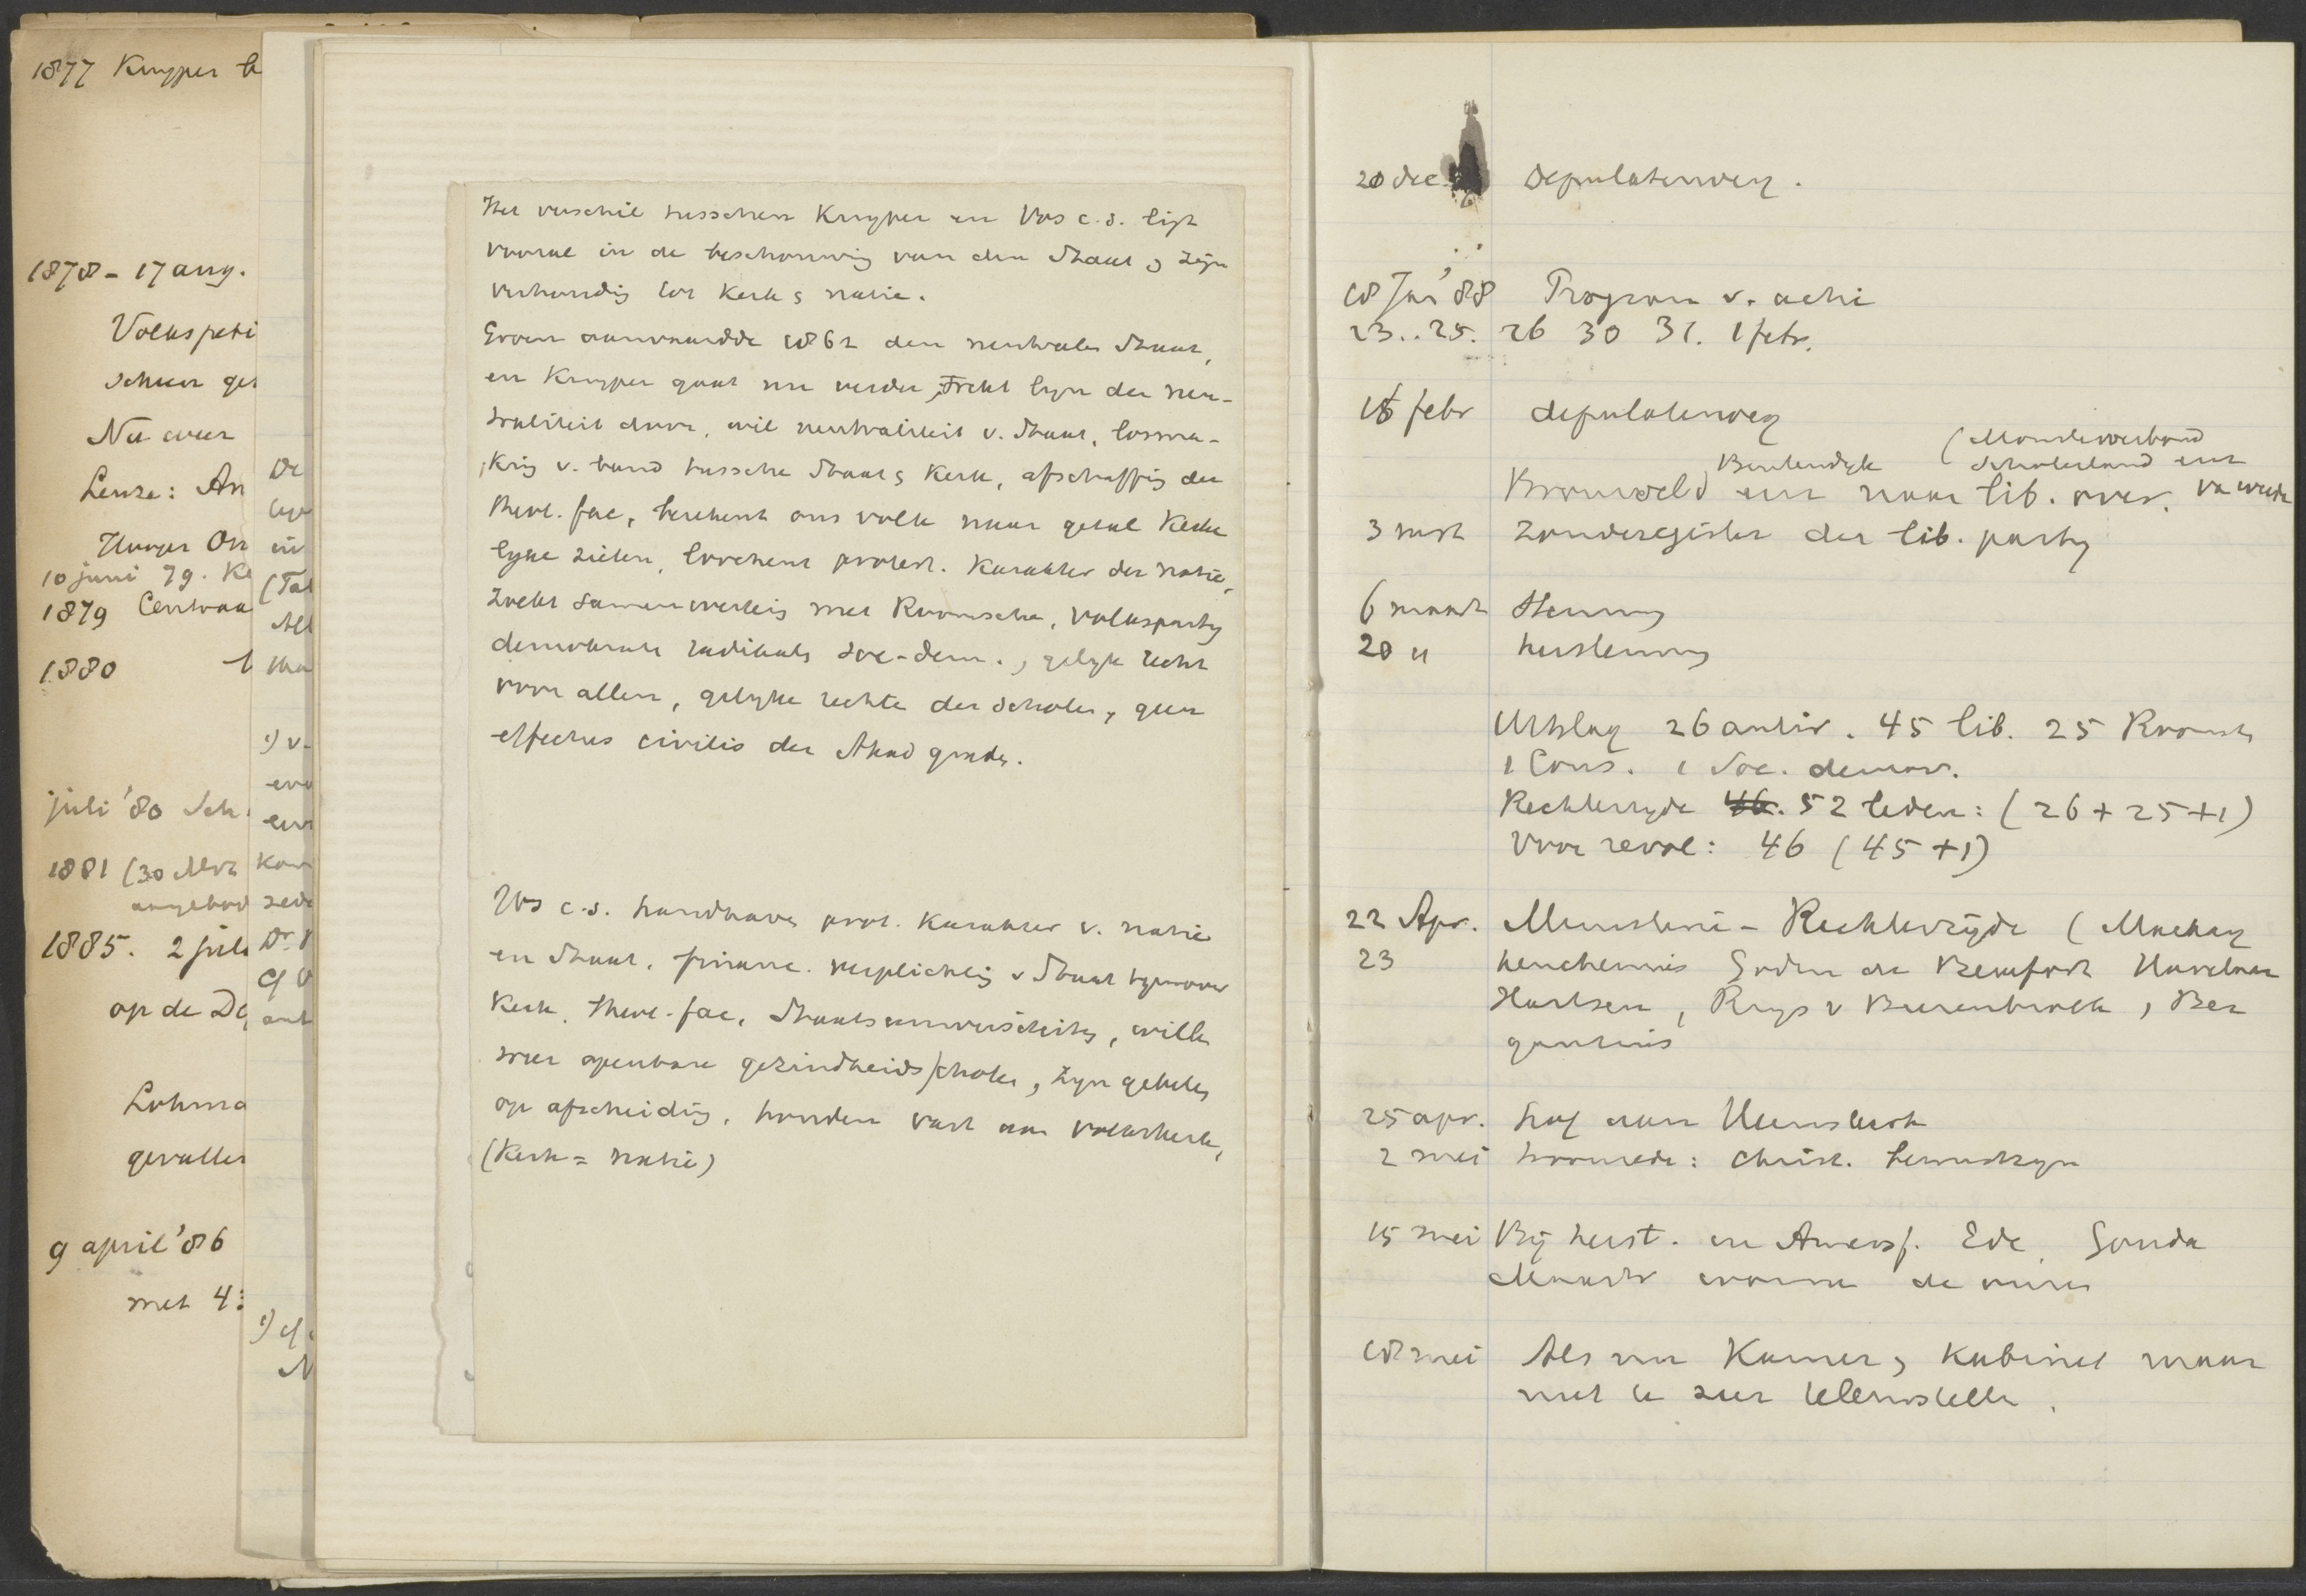 1877 Kuyper
1878 - 17 aug.
Volkspeti
schun ge
Nu weer
Leuze: An
Hunger On
10 juni 79. Ke
1879 Centraa
1880
juli '80 Sch
1881 (30
aangebod
1885. 2 juli
op de De
Lohma
gevallen
9 april '86
met 4:
De
en
(Tal
All
1) v.
Kan
Dr.
cf
1) cf
N
Het verschil tusschen Kuyper en Vos c.s. ligt
vooral in de beschouwing van den Staat & zijn
verhouding tot Kerk & natie.
Groen aanvaardde 1862 den neutralen Staat,
en Kuyper gaat nu verder, trekt lijn der neu-
traliteit door, wil neutraliteit v. Staat, losma-
king v. band tussche Staat & Kerk, afschaffing der
theol. fac, berekent ons volk naar getal Kerke
lyke zielen, loochent protest. Karakter der natie,
Zoekt samenwerking met Roomsche, volksparty
democraten radikals soc-dem., gelyk recht
voor allen, gelyke rechte der scholen, geen
effectus civilis der Akad graden.
Vos c.s. handhaven prot. Karakter v. natie
en Staat, financ. verplichtig v Staat tegenover
Kerk, theol-fac, Staatsuniversiteiten, wille
weer openbare gezindheids/scholen, zyn gebeten
op afscheiding, houden vast aan volkskerk,
(Kerk = natie)
20 dec. deputatenverg.
18 Jan '88 Program v. actie
23..25. 26 30 31. 1 febr.
15 febr deputatenverg
(Monsterverbond
Beelaerts Schoterland eer
Bronsveld eer naar lib. over.
3 mrt Zonderegister der lib. party
6 maart Stemming
20 " herstemming
Uitslag 26 antir. 45 lib. 25 Roomsch
1 Cons. 1 Soc. democr.
Rechterzyde 46. 52 leden: (26 + 25 + 1)
Voor revol: 46 (45 + 1)
22 Apr. Ministerie - Rechterzijde (Mackay
23 Keuchenius Godin de Beaufort Havelaar
Hartsen, Ruys v Beerenbroek, Ber
gansius
25 apr.
2 mei troonrede: christ. bewindzyn
15 mei Bij herst. in Amersf. Ede, Gouda
18 mei Als nu Kamer & Kabinet maar
niet te zeer teleurstelle.